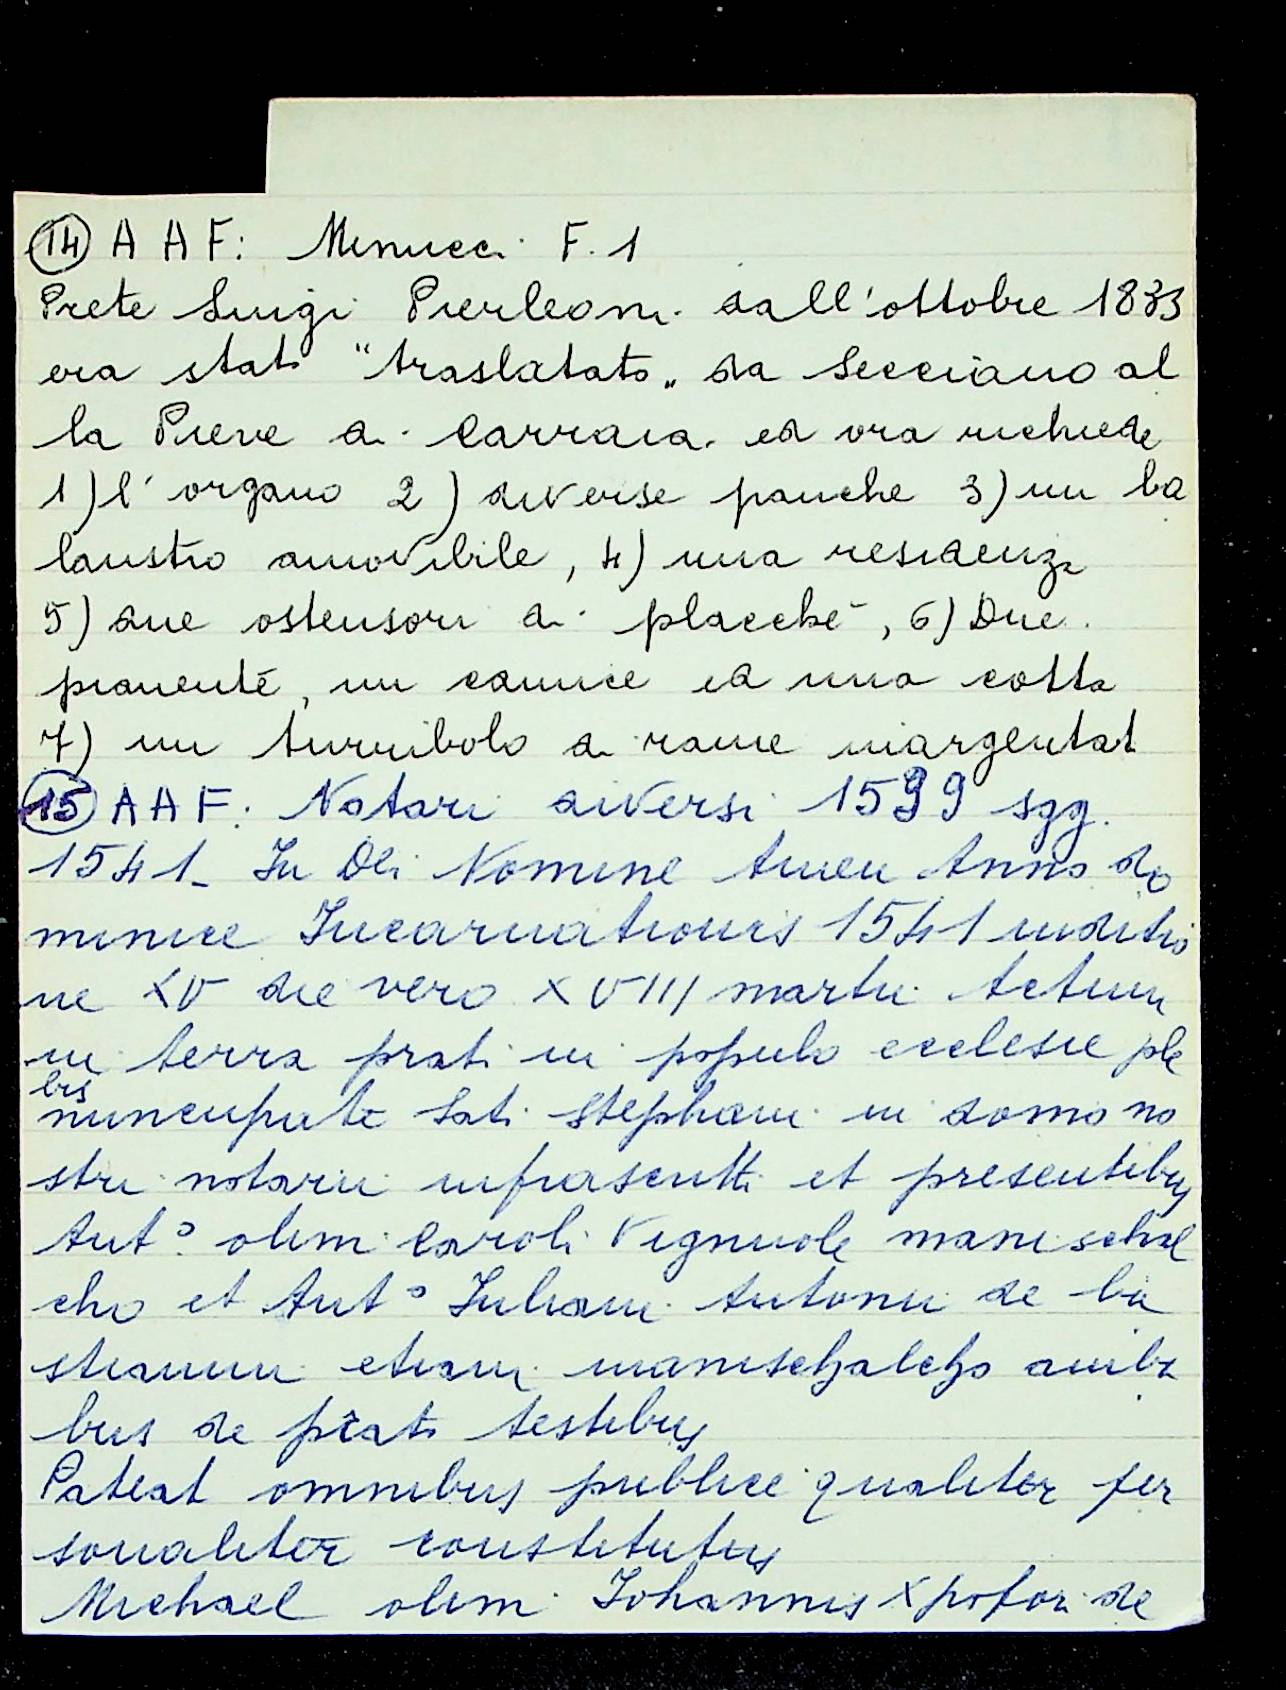 14 A A F: Minucci F. 1
Prete Luigi Pierleoni dall'ottobre 1833
era stato "traslatato„ da Secciano al
la Pieve di Carraia ed ora richiede
1) l'organo 2) diverse panche 3) un ba
laustro amovibile, 4) una residenza
5) due ostensori di placchè, 6) Due
pianente, un camice ed una cotta
7) un turribolo di rame inargentat
15 A A F: Notari diversi 1539 sgg.
1541_ In Dei Nomine Amen Anno do
minice Incarnationis 1541 inditio
ne XV die vero XVIII martii Actum
in terra prati in populo ecclesie ple
bis
nuncupate Sati Stephani in domo no
stri notarii infrascritti et presentibus
Ant° olim Caroli Vignuole manischal
cho et Ant° Juliani Antonii de ba
stianini etiam manischalcho ambo
bus de prato testibus
Pateat omnibus publice qualiter per
sonaliter constitutus
Michael olim Johannis Xpofori de